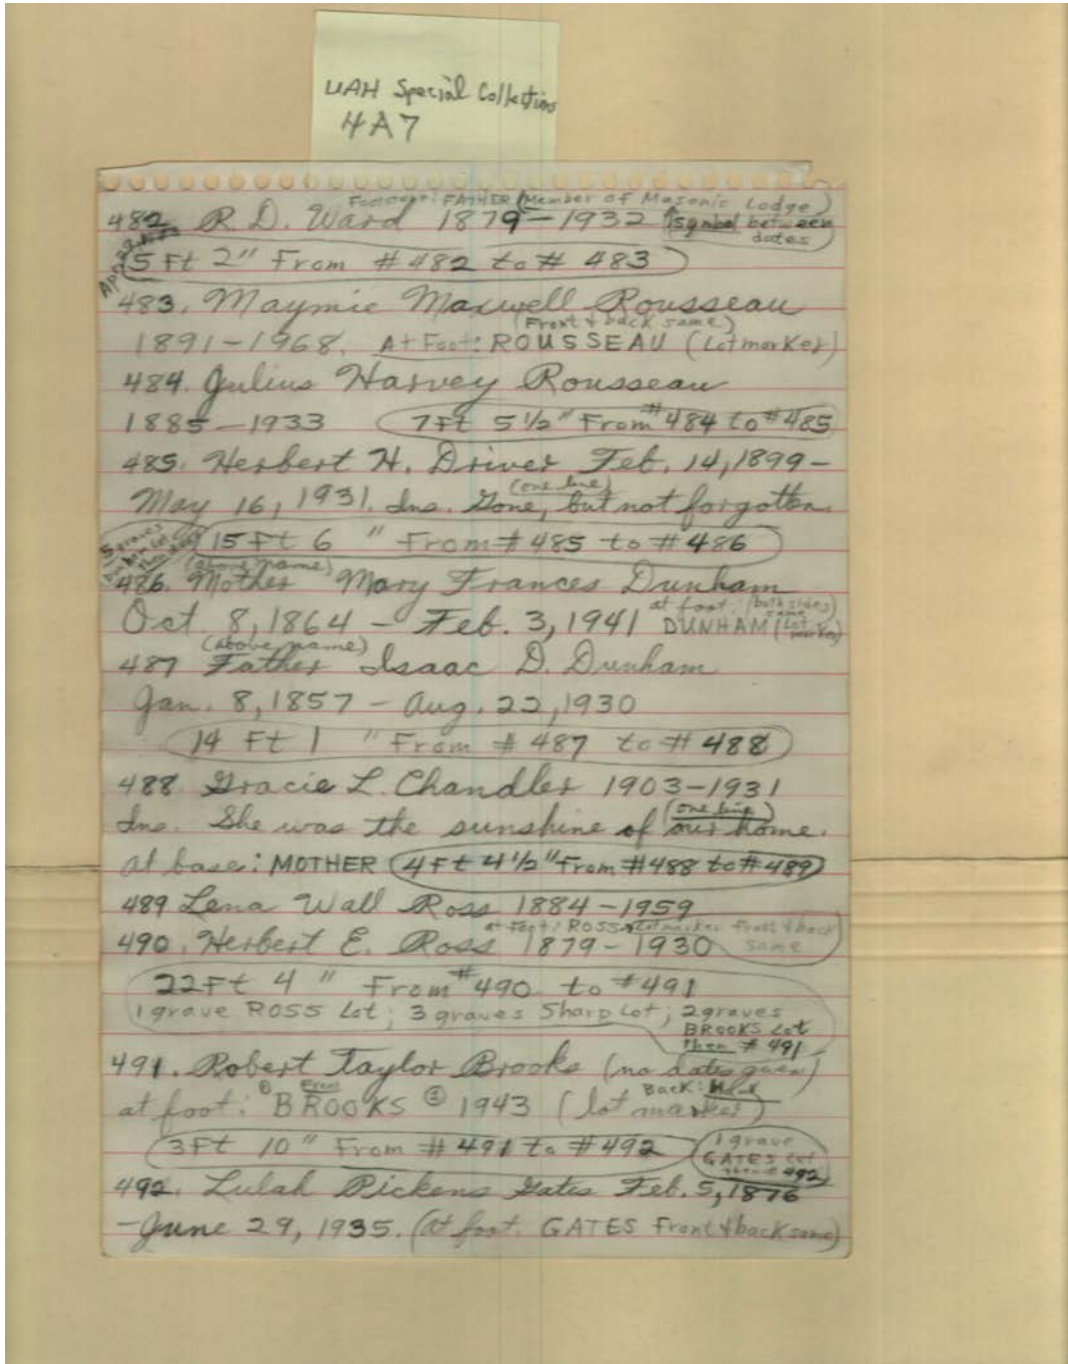 UAH Special Collections
4A7
Footstone: FATHER (Member of Masonic Lodge)
482 R. D. Ward 1879-1932 symbol between
dates
5 Ft 2" From #482 to # 483
483. Maymie Maxwell Rousseau
(Front & back same)
1891-1968. At Foot: ROUSSEAU (Lot marker)
484. Julius Harvey Rousseau
1885-1933 7Ft 5½" From #484 to #485
485. Herbert H. Driver Feb. 14, 1899-
(one line)
May 16, 1931. Ins. Gone, but not forgotten.
5 graves
15 Ft 6 " From # 485 to # 486
(above name)
486. Mother Mary Frances Dunham
at foot: (both sides same
Oct. 8, 1864 - Feb. 3, 1941 DUNHAM (Lot marker)
(above name)
487 Father Isaac D. Dunham
Jan. 8, 1857 - Aug. 22, 1930
14 Ft 1 " From # 487 to # 488
488 Gracie L. Chandler 1903-1931
(one line)
Ins. She was the sunshine of our home.
at base: MOTHER 4Ft 4½" From #488 to #489
489 Lena Wall Ross 1884-1959
at foot: ROSS Lot marker Front & back
same
490. Herbert E. Ross 1879-1930
22Ft 4 " From #490 to #491
1 grave ROSS Lot; 3 graves Sharp Lot; 2 graves
BROOKS Lot
then # 491
491. Robert Taylor Brooks (no dates given)
① Front Back:
at foot: BROOKS ② 1943 (lot marker)
3Ft 10" From # 491 to # 492 1 grave
GATES Lot
then # 492
492. Lulah Pickens Gates Feb. 5, 1876
-June 29, 1935. (at foot. GATES Front & back same)